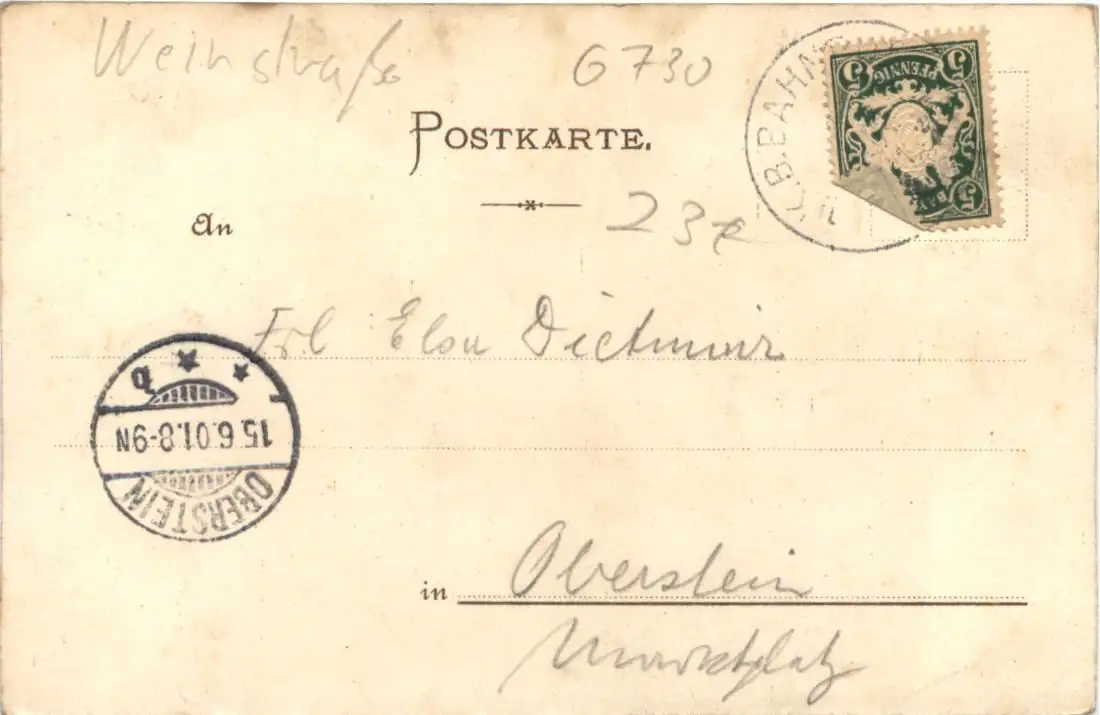 Weinstraße G 730
POSTKARTE.
An
23,-
Frl Elsa Dietmair
in Oberstein
Marktplatz
K.B.BAHN
5 5
PFENNIG
5
BAY
15.6.01.8-9N
OBERSTEIN